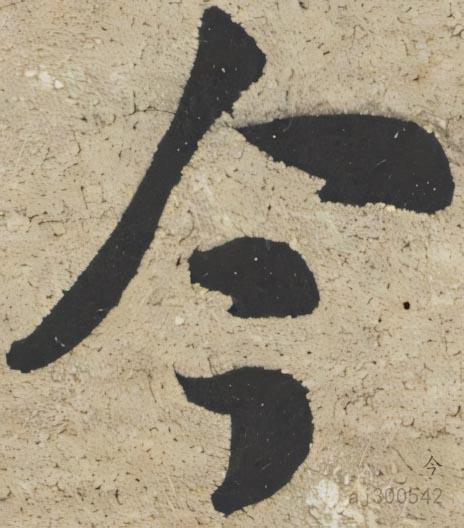 今
今
a j300542